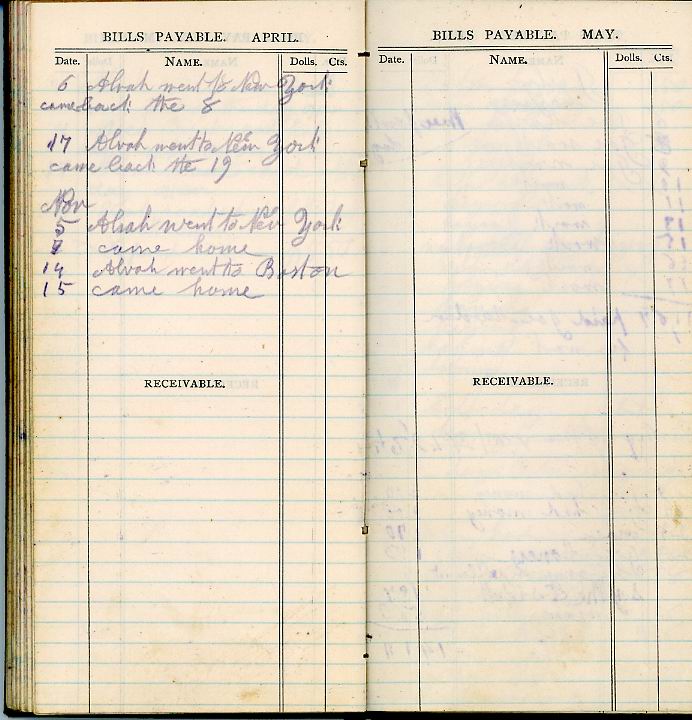 BILLS PAYABLE. APRIL.
Date. NAME. Dolls. Cts.
6 Alvah went to New York
came back the 8
17 Alvah went to New York
came back the 19
Nov
5 Alvah went to New York
7 came home
14 Alvah went to Boston
15 came home
RECEIVABLE.
BILLS PAYABLE. MAY.
Date. NAME. Dolls. Cts.
RECEIVABLE.